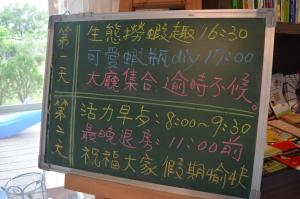 第一天
生態撈蝦趣 16:30
可愛蝦瓶diy 17:00
大廳集合,逾時不候。
第二天
活力早夕:8:00~9:30
最晚退房:11:00前
祝福大家 假期愉快